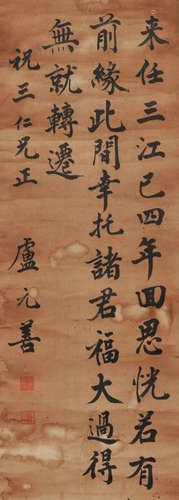 来任三江已四年回思恍若有
前緣此間幸托諸君福大過得
無就轉遷
祝三仁兄正
盧元善